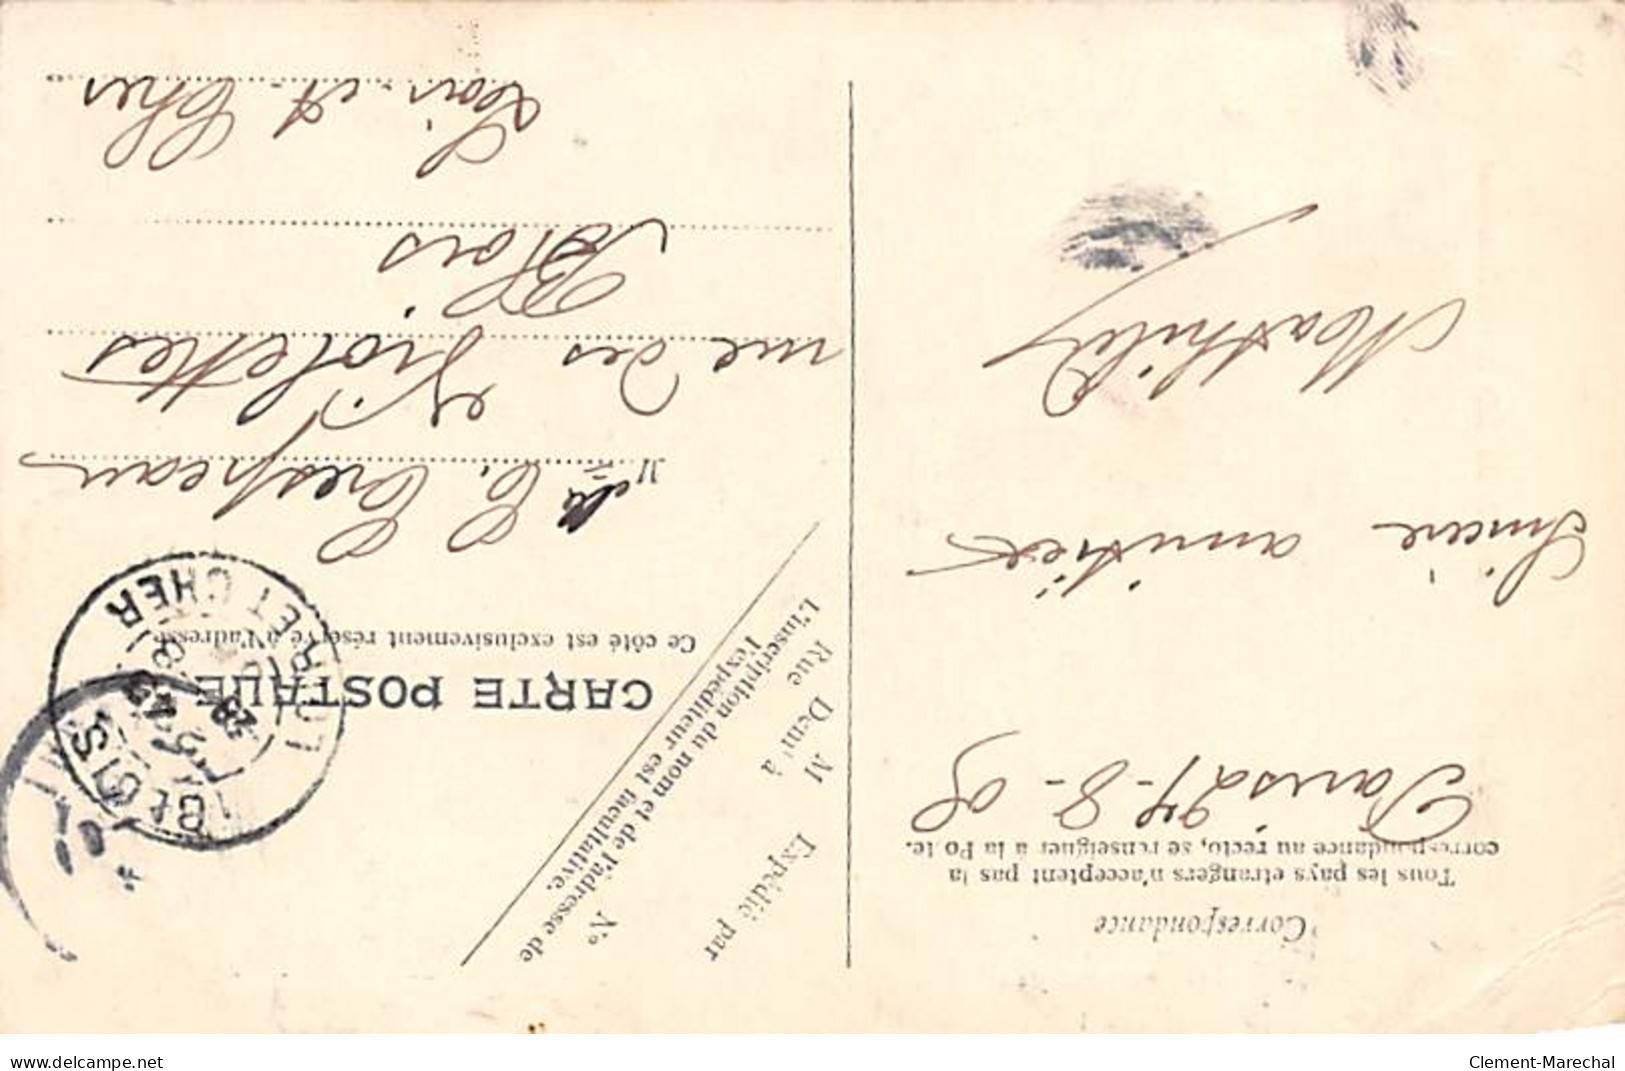 Correspondance
Tous les pays etrangers n'acceptent pas la
correspondance au recto, se renseigner à la Po te.
Paris 27-8-05
Sincère amitiés
Mathilde
Expédié par
M
Demt à
Rue
N°
L'inscription du nom et de l'adresse de
l'expéditeur est facultative.
CARTE POSTALE
Ce côté est exclusivement réservé à l'adresse
Melle C. Crespeau
rue des Violettes
Blois
Loir et Cher
BLOIS
LOIR ET CHER
delcampe.net
Clement-Marechal